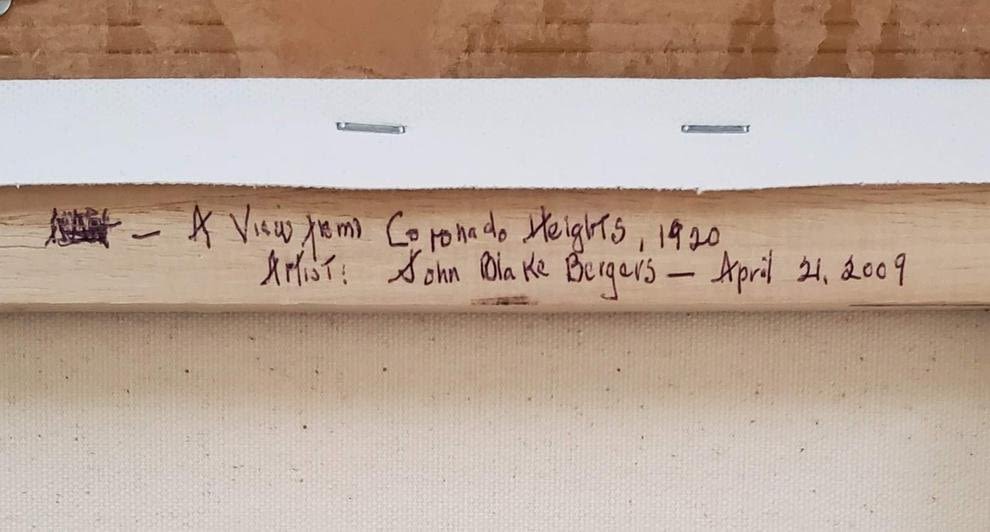 - A View from Coronado Heights, 1920
Artist: John Blake Bergers - April 21, 2009